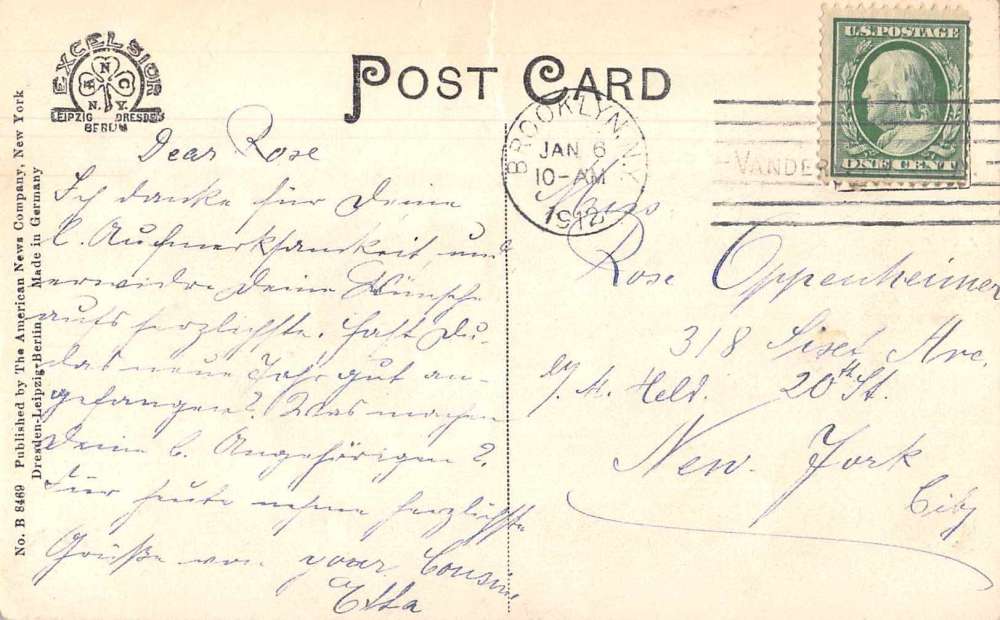 EXCELSIOR
A N C
N. Y.
LEIPZIG DRESDEN
BERLIN
POST CARD
U.S. POSTAGE
ONE CENT
BROOKLYN, N.Y.
JAN 6
10-AM
1912
VANDER
No. B 8469 Published by The American News Company, New York
Dresden-Leipzig-Berlin Made in Germany
Dear Rose
Ich danke für Deine
l. Aufmerksamkeit, und
erwidre Deine Wünsche
aufs herzlichste. Hast Du
das neue Jahr gut an-
gefangen? Was machen
Deine l. Angehörigen?
Für heute nehme herzlichste
Grüße von your Cousine
Etta
Miss
Rose Oppenheimer
318 Ave.
Held. 20th St.
New York
City